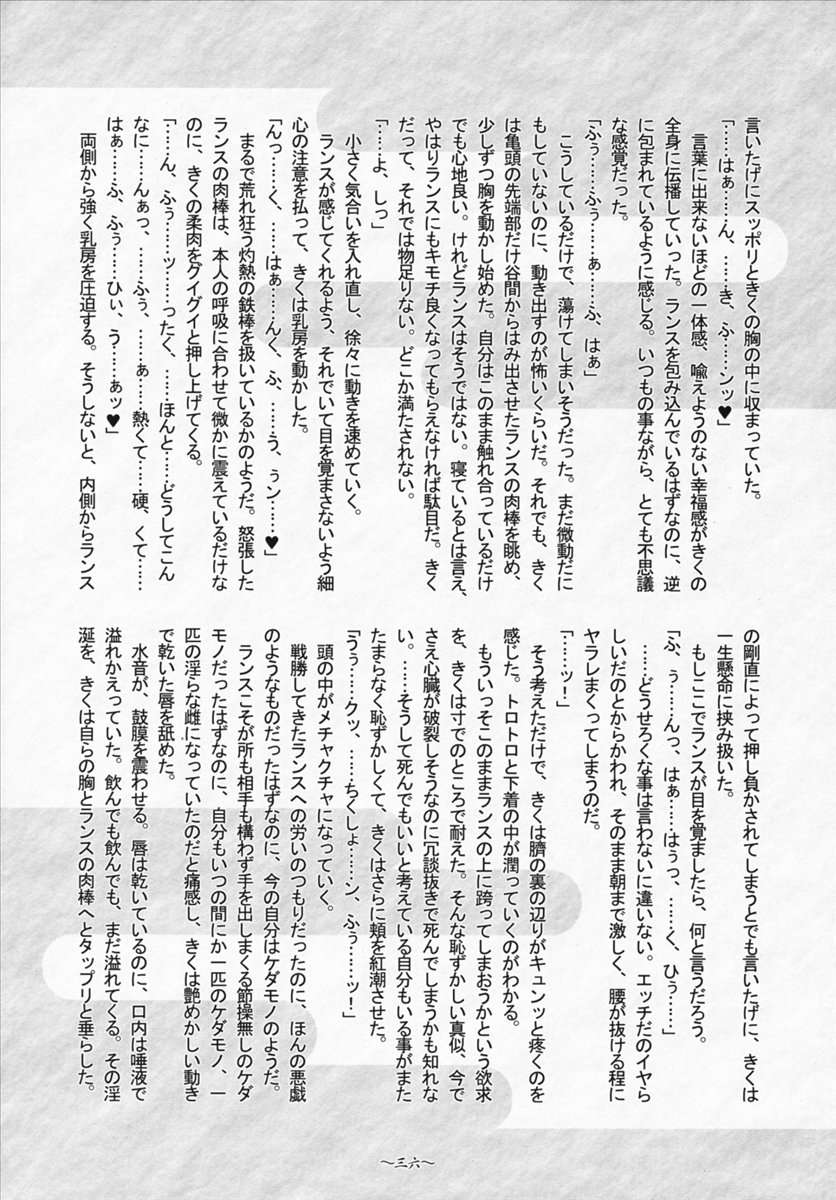 言いたげにスッポリときくの胸の中に収まっていた。
「……はぁ……ん、……き、ふ……ンッ♥」
　言葉に出来ないほどの一体感、喩えようのない幸福感がきくの
全身に伝播していった。ランスを包み込んでいるはずなのに、逆
に包まれているように感じる。いつもの事ながら、とても不思議
な感覚だった。
「ふぅ……ふぅ……ぁ……ふ、はぁ」
　こうしているだけで、蕩けてしまいそうだった。まだ微動だに
もしていないのに、動き出すのが怖いくらいだ。それでも、きく
は亀頭の先端部だけ谷間からはみ出させたランスの肉棒を眺め、
少しずつ胸を動かし始めた。自分はこのまま触れ合っているだけ
でも心地良い。けれどランスはそうではない。寝ているとは言え、
やはりランスにもキモチ良くなってもらえなければ駄目だ。きく
だって、それでは物足りない。どこか満たされない。
「……よ、しっ」
　小さく気合いを入れ直し、徐々に動きを速めていく。
　ランスが感じてくれるよう、それでいて目を覚まさないよう細
心の注意を払って、きくは乳房を動かした。
「んっ……く、……はぁ……んく、ふ、……う、ぅン……♥」
　まるで荒れ狂う灼熱の鉄棒を扱いているかのようだ。怒張した
ランスの肉棒は、本人の呼吸に合わせて微かに震えているだけな
のに、きくの柔肉をグイグイと押し上げてくる。
「……ん、ふぅ……ッ……ったく、……ほんと……どうしてこん
なに……んぁっ、……ふぅ、……ぁ……熱くて……硬、くて……
はぁ……ふ、ふぅ……ひぃ、う……ぁッ♥」
　両側から強く乳房を圧迫する。そうしないと、内側からランス
の剛直によって押し負かされてしまうとでも言いたげに、きくは
一生懸命に挟み扱いた。
　もしここでランスが目を覚ましたら、何と言うだろう。
「ふ、ぅ……んっ、はぁ……はぅっ、……く、ひぅ……」
　……どうせろくな事は言わないに違いない。エッチだのイヤら
しいだのとからかわれ、そのまま朝まで激しく、腰が抜ける程に
ヤラレまくってしまうのだ。
「……ッ！」
　そう考えただけで、きくは臍の裏の辺りがキュンッと疼くのを
感じた。トロトロと下着の中が潤っていくのがわかる。
　もういっそこのままランスの上に跨ってしまおうかという欲求
を、きくは寸でのところで耐えた。そんな恥ずかしい真似、今で
さえ心臓が破裂しそうなのに冗談抜きで死んでしまうかも知れな
い。……そうして死んでもいいと考えている自分もいる事がまた
たまらなく恥ずかしくて、きくはさらに頬を紅潮させた。
「うぅ……クッ、……ちくしょ……ン、ふぅ……ッ！」
　頭の中がメチャクチャになっていく。
　戦勝してきたランスへの労いのつもりだったのに、ほんの悪戯
のようなものだったはずなのに、今の自分はケダモノのようだ。
　ランスこそが所も相手も構わず手を出しまくる節操無しのケダ
モノだったはずなのに、自分もいつの間にか一匹のケダモノ、一
匹の淫らな雌になっていたのだと痛感し、きくは艶めかしい動き
で乾いた唇を舐めた。
　水音が、鼓膜を震わせる。唇は乾いているのに、口内は唾液で
溢れかえっていた。飲んでも飲んでも、まだ溢れてくる。その淫
涎を、きくは自らの胸とランスの肉棒へとタップリと垂らした。
～三六～